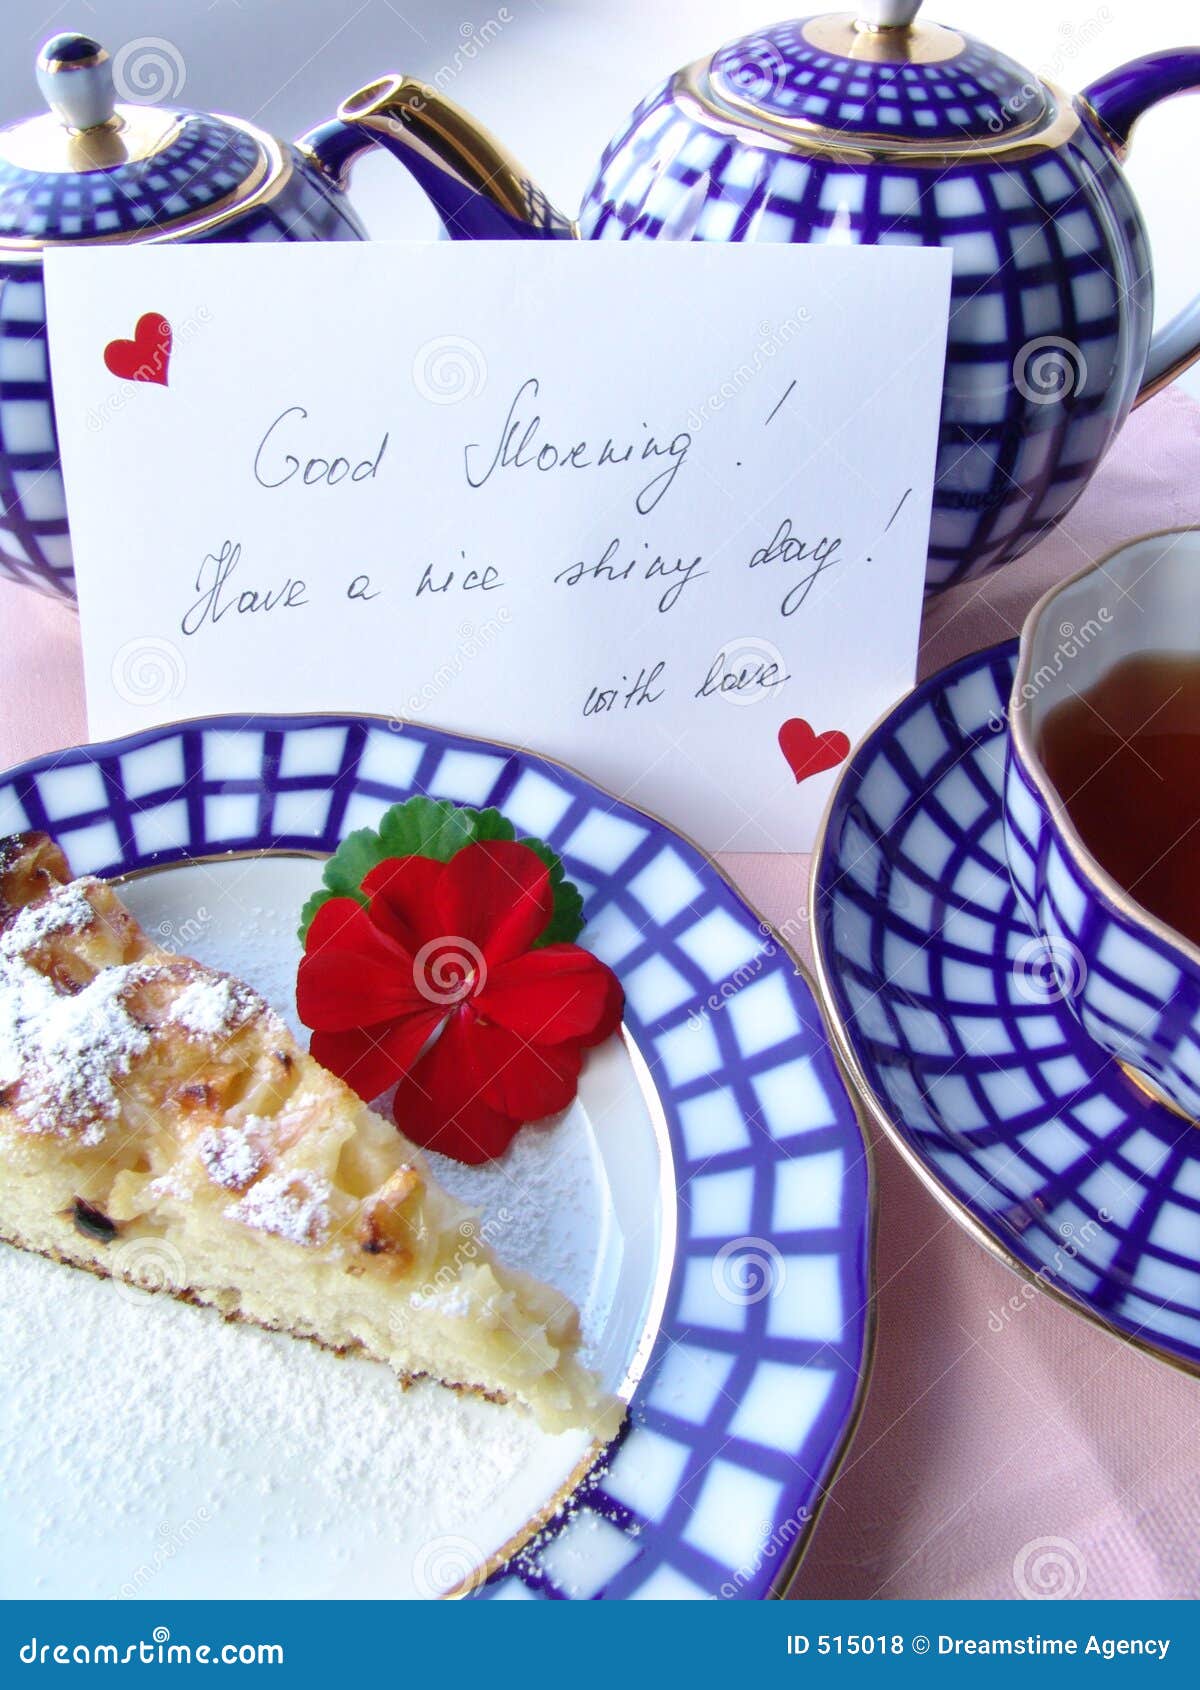 Good Morning!
Have a nice shiny day!
with love
dreamstime.com
ID 515018 © Dreamstime Agency